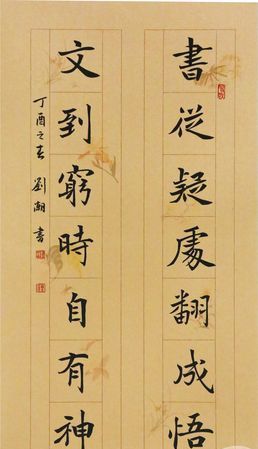 書從疑處翻成悟
文到窮時自有神
丁酉之春 劉湖書